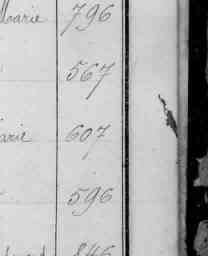 Marie 796
567
arie 607
596
846